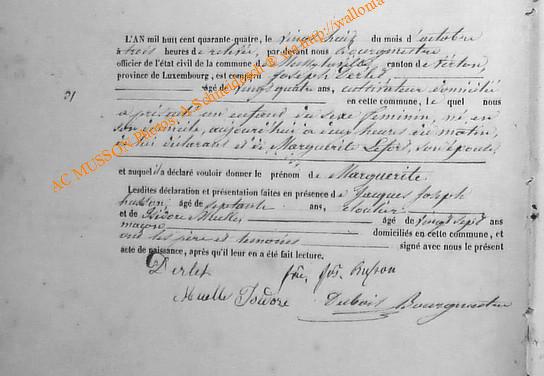 L'AN mil huit cent quarante-quatre, le vingt huit du mois d'octobre
à trois heures de relevée, par devant nous Bourgmestre
officier de l'état civil de la commune de canton de Virton,
province de Luxembourg, est comparu Joseph Derlet
âgé de ans, cultivateur domicilié
31
en cette commune, le quel nous
a présenté un enfant du sexe féminin, né en
son domicile, aujourd'hui à heures du matin,
de lui déclarant et de Marguerite Lefort, son épouse
et auquel il a déclaré vouloir donner le prénom de Marguerite.
Lesdites déclaration et présentation faites en présence de Jacques Joseph
husson âgé de septante ans, cloutier
et de Isidore Muelle âgé de vingt sept ans
maçon domiciliés en cette commune, et
ont les père et témoins signé avec nous le présent
acte de naissance, après qu'il leur en a été fait lecture.
Derlet jos. husson
Muelle Isidore Dubois Bourgmestre
AC MUSSON Photos A Schneidesch @ http://wallonia